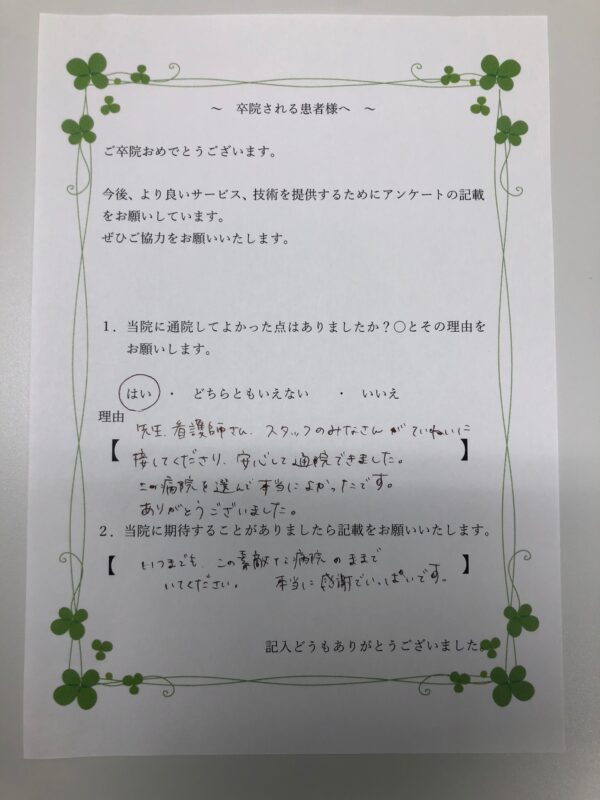 ～　卒院される患者様へ　～
ご卒院おめでとうございます。
今後、より良いサービス、技術を提供するためにアンケートの記載
をお願いしています。
ぜひご協力をお願いいたします。
１．当院に通院してよかった点はありましたか？〇とその理由を
お願いします。
はい　・　どちらともいえない　　・　いいえ
理由
先生、看護師さん、スタッフのみなさんがていねいに
【 接してくださり、安心して通院できました。 】
この病院を選んで本当によかったです。
ありがとうございました。
２．当院に期待することがありましたら記載をお願いいたします。
【 いつまでも、この素敵な病院のままで 】
いてください。　本当に感謝でいっぱいです。
記入どうもありがとうございました。